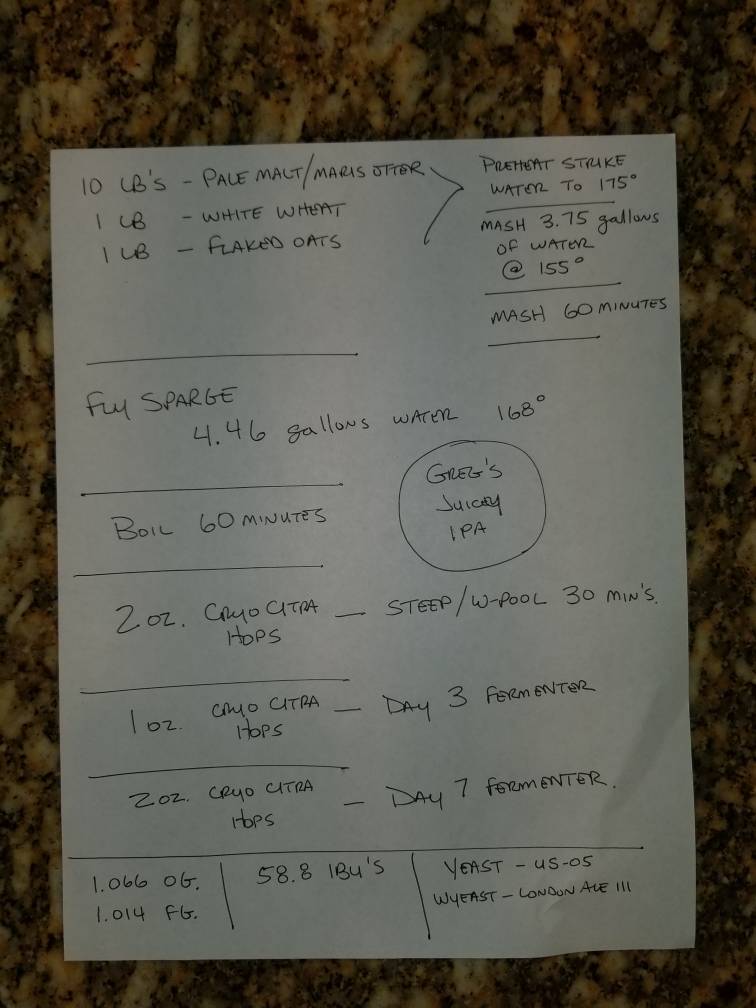 10 LB'S - PALE MALT/MARIS OTTER
1 LB - WHITE WHEAT
1 LB - FLAKED OATS
PREHEAT STRIKE
WATER TO 175°
MASH 3.75 gallons
OF WATER
@ 155°
MASH 60 MINUTES
Fly SPARGE
4.46 gallons WATER 168°
GREG'S
JUICEY
IPA
BOIL 60 MINUTES
2 oz. CRYO CITRA — STEEP/W-POOL 30 MIN'S.
HOPS
1 oz. CRYO CITRA — DAY 3 FERMENTER
HOPS
2 oz. CRYO CITRA — DAY 7 FERMENTER.
HOPS
1.066 OG.
1.014 FG.
58.8 IBU'S
YEAST - US-05
WYEAST - LONDON ALE III